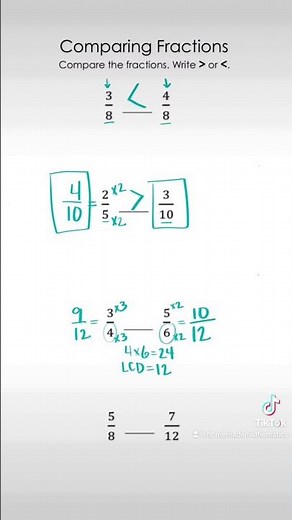 Comparing Fractions
Compare the fractions. Write > or <.
↓ ↓
3/8 < 4/8
4/10 = 2/5 ×2 ×2 > 3/10
9/12 = 3/4 ×3 ×3 ___ 5/6 ×2 ×2 = 10/12
4×6=24
LCD=12
5/8 ___ 7/12
TikTok